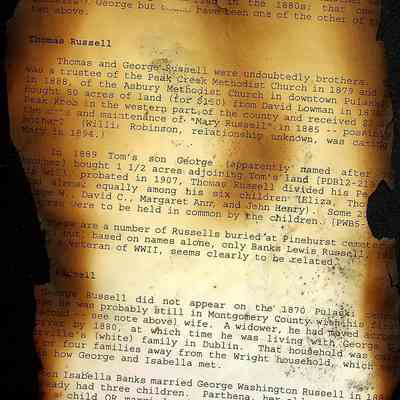 George but have been one of the other
two above.
Thomas Russell
Thomas and George Russell were undoubtedly brothers.
was a trustee of the Peak Creek Methodist Church in 1879 and
in 1888, of the Asbury Methodist Church in downtown Pulaski
bought 80 acres of land (for $150) from David Lowman in 187
Peak Knob in the western part of the county and received 22
and maintenance of "Mary Russell" in 1885 --
mother? (Willi: Robinson, relationship unknown, was caring
Mary in 1894.)
In 1889 Tom's son George (apparently named after
bought 1 1/2 acres adjoining Tom's land [PDB12-21
probated in 1907, Thomas Russell divided his
almost equally among his six children (Eliza, Tho
W., David C., Margaret Ann, and John Henry). Some 20
were to be held in common by the children. [PWB5-
are a number of Russells buried at Pinehurst cemet
but, based on names alone, only Banks Lewis Russell,
veteran of WWII, seems clearly to be related.
George Russell did not appear on the 1870 Pulaski
he was probably still in Montgomery County with his
-- see note above) wife. A widower, he had moved acros
by 1880, at which time he was living with George
(white) family in Dublin. That household was
or four families away from the Wright household, which
how George and Isabella met.
Isabella Banks married George Washington Russell in 188
already had three children. Parthena, her
child OR